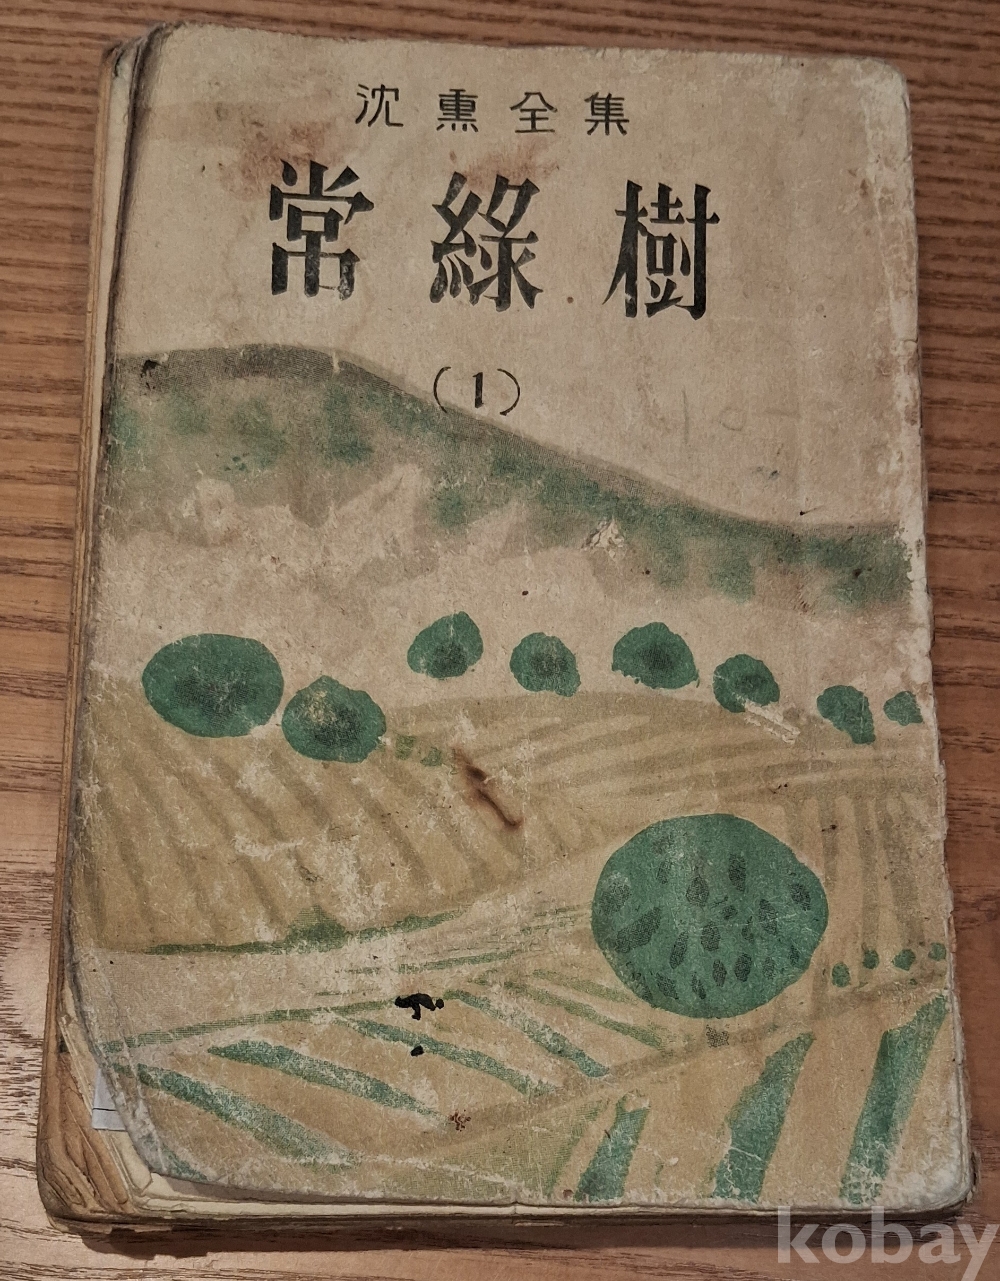 沈熏全集
常綠樹
(1)
kobay